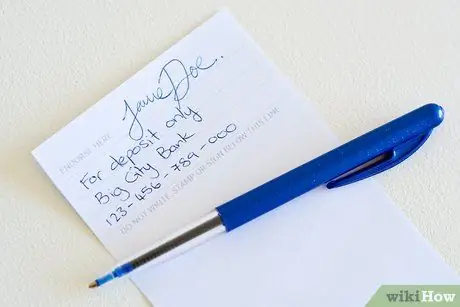 Jane Doe.
ENDORSE HERE
For deposit only
Big City Bank
123-456-789-000
DO NOT WRITE, STAMP OR SIGN BELOW THIS LINE
wikiHow